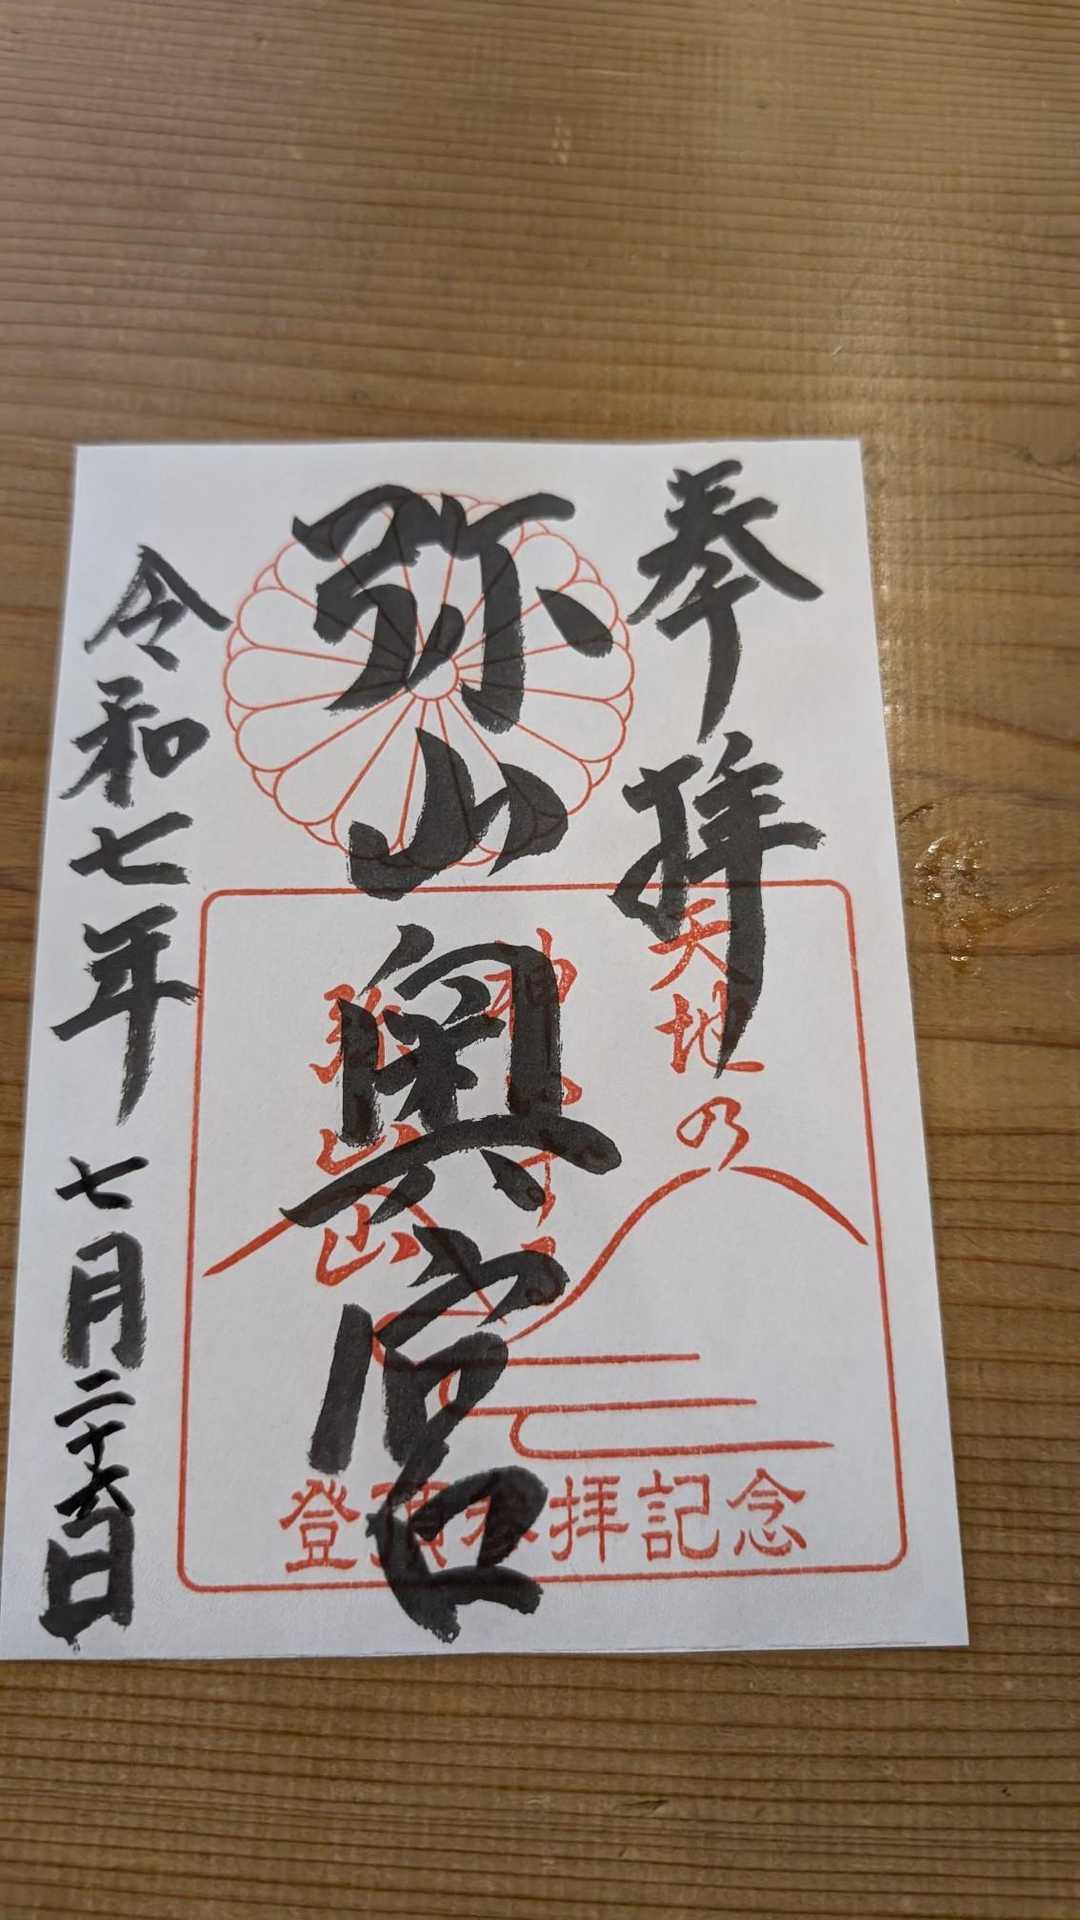 奉拝
弥山奥宮
令和七年 七月二十六日
天地の
弥山
登頂参拝記念